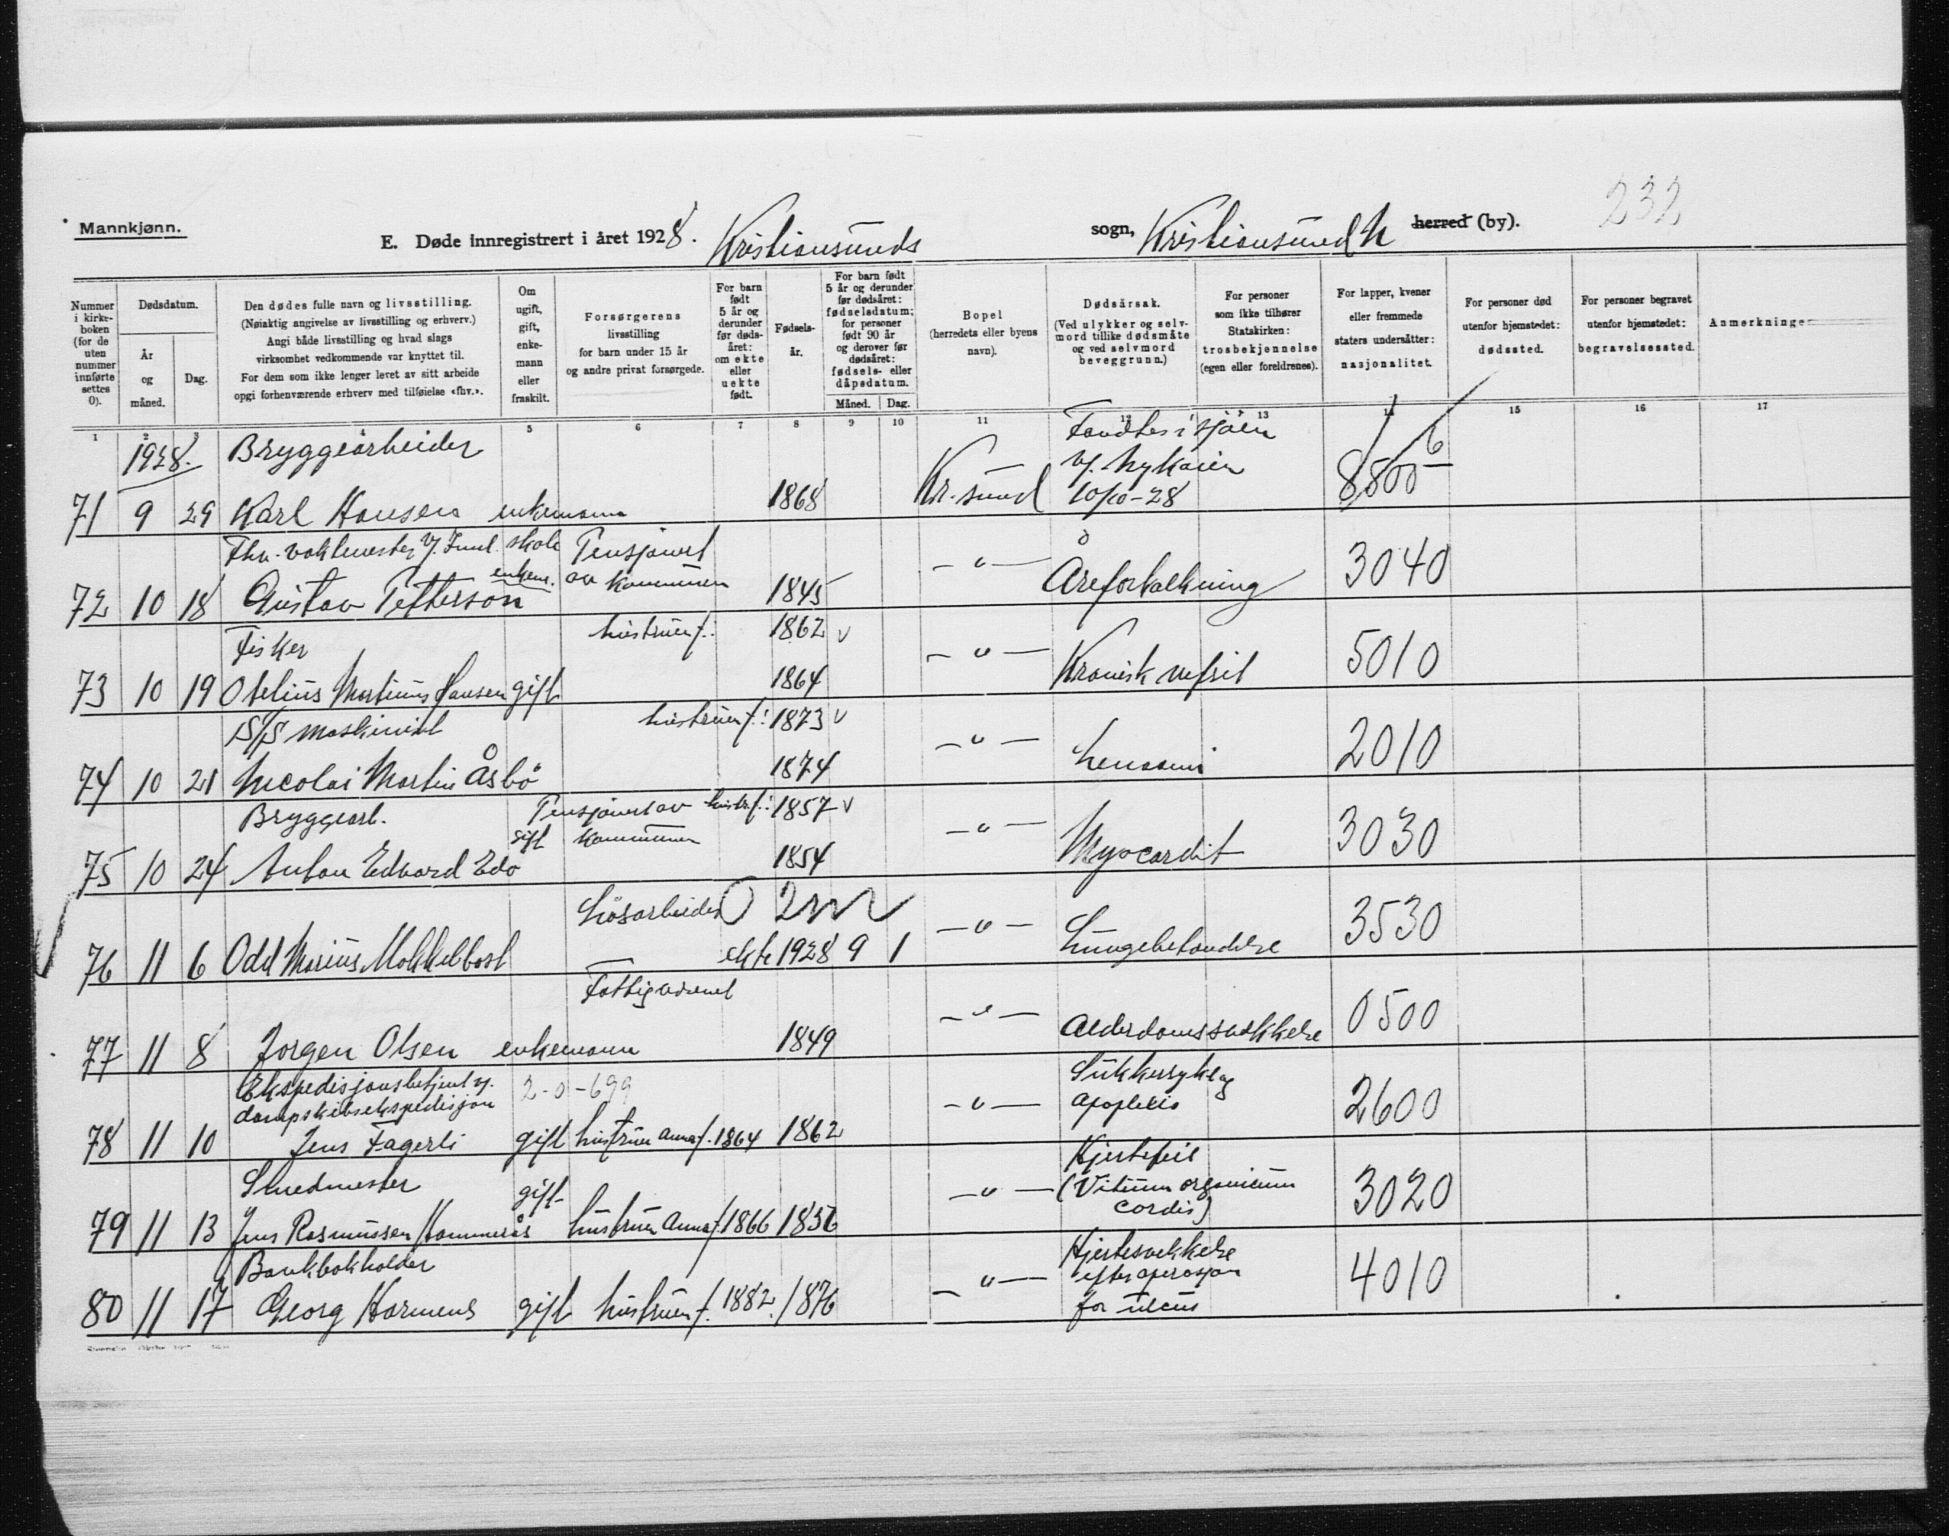 232
Mannkjønn.
E. Døde innregistrert i året 1928. Kristiansunds sogn, Kristiansund N herred (by).
Nummer i kirkeboken (for de uten nummer innførte settes 0).
Dødsdatum.
År og måned.
Dag.
Den dødes fulle navn og livsstilling.
(Nøiaktig angivelse av livsstilling og erhverv.)
Angi både livsstilling og hvad slags
virksomhet vedkommende var knyttet til.
For dem som ikke lenger levet av sitt arbeide
opgi forhenværende erhverv med tilføielse «fhv.».
Om ugift, gift, enkemann eller fraskilt.
Forsørgerens
livsstilling
for barn under 15 år
og andre privat forsørgede.
For barn født 5 år og derunder før dødsåret: om ekte eller uekte født.
Fødselsår.
For barn født 5 år og derunder før dødsåret: fødselsdatum; for personer født 90 år og derover før dødsåret: fødsels- eller dåpsdatum.
Måned. Dag.
Bopel
(herredets eller byens
navn).
Dødsårsak.
(Ved ulykker og selvmord tillike dødsmåte og ved selvmord beveggrunn.)
For personer
som ikke tilhører
Statskirken:
trosbekjennelse
(egen eller foreldrenes).
For lapper, kvener
eller fremmede
staters undersåtter:
nasjonalitet.
For personer død
utenfor hjemstedet:
dødssted.
For personer begravet
utenfor hjemstedet:
begravelsessted.
Anmerkninger
1 2 3 4 5 6 7 8 9 10 11 12 13 14 15 16 17
1928. Bryggearbeider Fandtes i sjøen
v/. Nykaien 6
71 9 29 Karl Hansen enkemann 1868 Kr.sund 10/10-28 8800
Fhv. vaktmester v/. skole Pensjonert
72 10 18 Gustav Petterson enkem. av kommunen 1845 -"- Åreforkalkning 3040
Fisker hustruen f.: 1862 v
73 10 19 Otelius Martinus Hansen gift 1864 -"- Kronisk nefrit 5010
D/S maskinist hustruen f.: 1873 v
74 10 21 Nicolai Martin Åsbö 1874 -"- 2010
Bryggearb. Pensjonert av hustr. f.: 1857 v
75 10 24 Anton Edvard Edö gift kommunen 1854 -"- Myocardit 3030
Lösarbeider 2 m
76 11 6 Odd Marius Mokkelbost ekte 1928 9 1 -"- Lungebetendelse 3530
Fattigvesenet
77 11 8 Jorgen Olsen enkemann 1849 -"- Alderdomssvekkelse 0500
Ekspedisjonsbetjent v/. 2-0-699 Sukkersyke og
dampskibsekspedisjon
78 11 10 Jens Fagerli gift hustruen Anna f. 1864 1862 -"- apoplexi 2600
Smedmester gift Hjertefeil
79 11 13 Jens Rasmussen Hammerås hustruen Anna f. 1866 1856 -"- (Vitium organicum cordis) 3020
Bankbokholder Hjertesvekkelse
80 11 17 Georg Harmens gift hustruen f. 1882. 1876 -"- efter operasjon for ulcus 4010